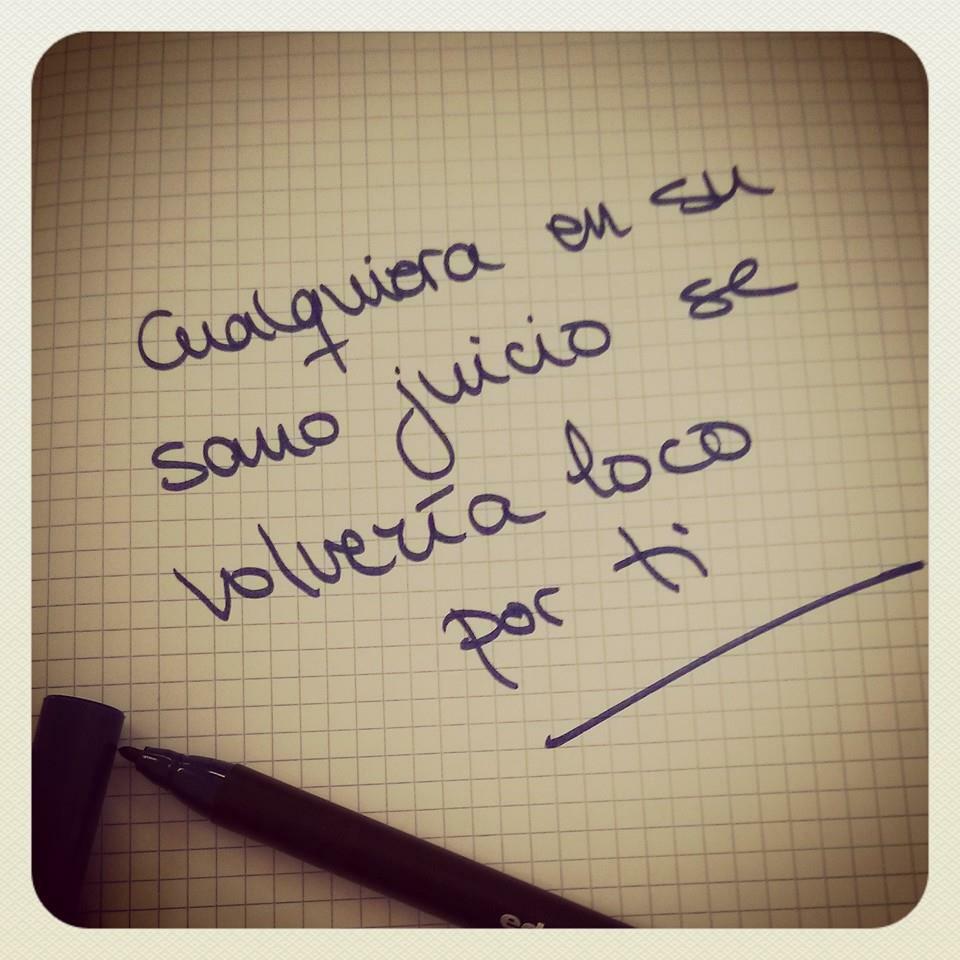 Cualquiera en su
sano juicio se
volvería loco
por ti
ed